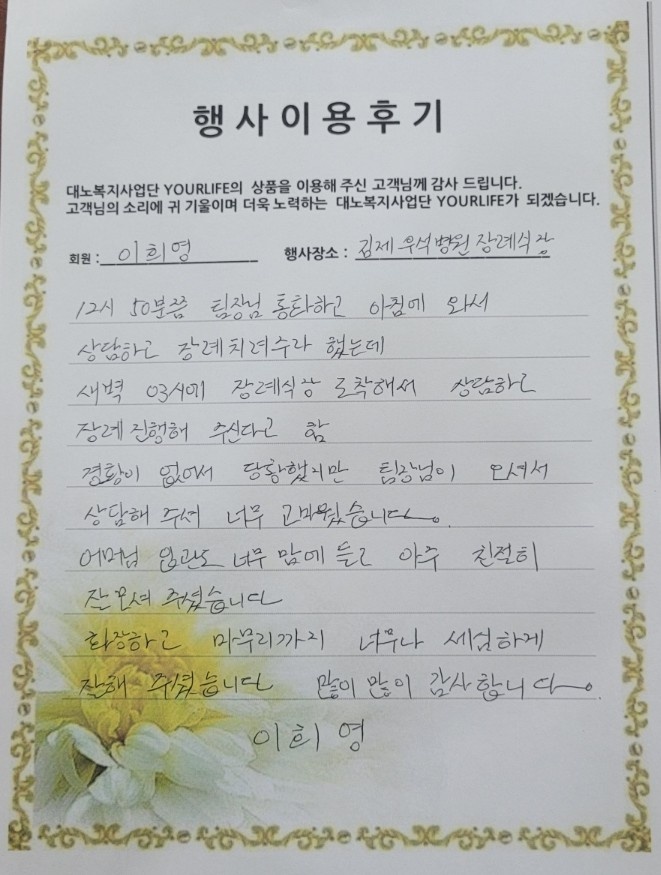 행사이용후기
대노복지사업단 YOURLIFE의 상품을 이용해 주신 고객님께 감사 드립니다.
고객님의 소리에 귀 기울이며 더욱 노력하는 대노복지사업단 YOURLIFE가 되겠습니다.
회원 : 이희영 행사장소 : 김제 우석병원 장례식장
12시 50분쯤 팀장님 통화하고 아침에 와서
상담하고 장례치려주라 했는데
새벽 03시에 장례식장 도착해서 상담하고
장례 진행해 주신다고 함
경황이 없어서 당황했지만 팀장님이 오셔서
상담해 주셔 너무 고마웠습니다.
어머님 입관도 너무 맘에 들고 아주 친절히
잘 모셔 주셨습니다
화장하고 마무리까지 너무나 세심하게
잘해 주셨습니다 많이 많이 감사합니다.
이희영